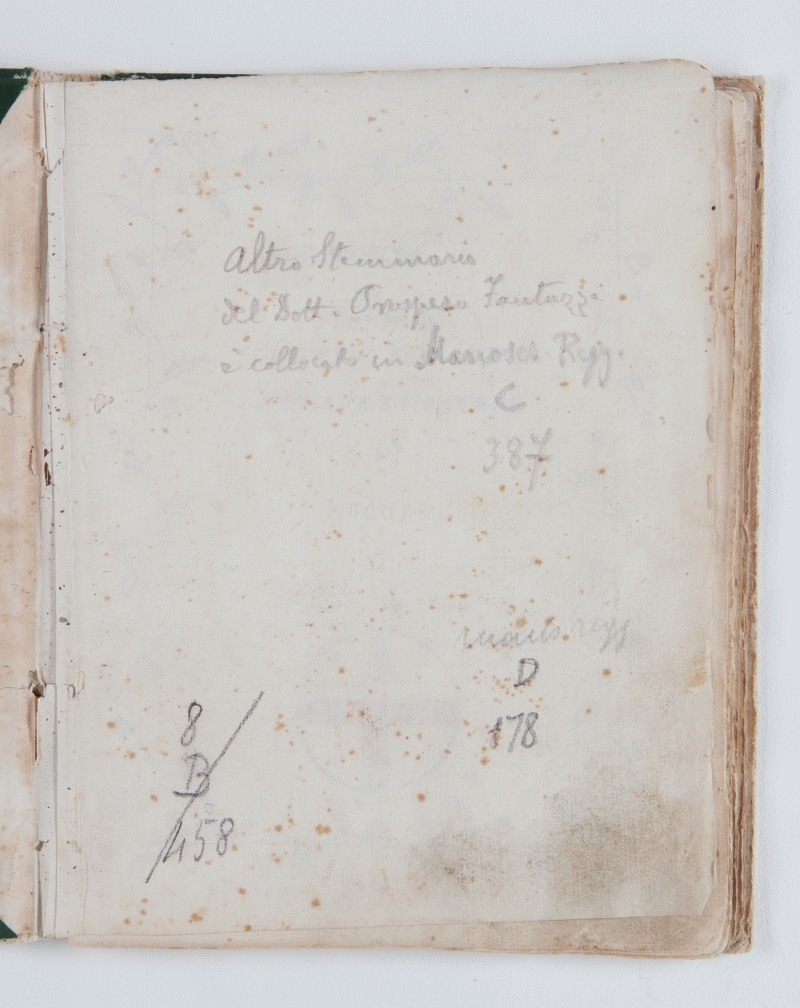 Altro Stemmario
del Dott. Prospero Fantuzzi
è collocato in Manoscr Regg.
C
387
manos regg
D
178
8
B
458